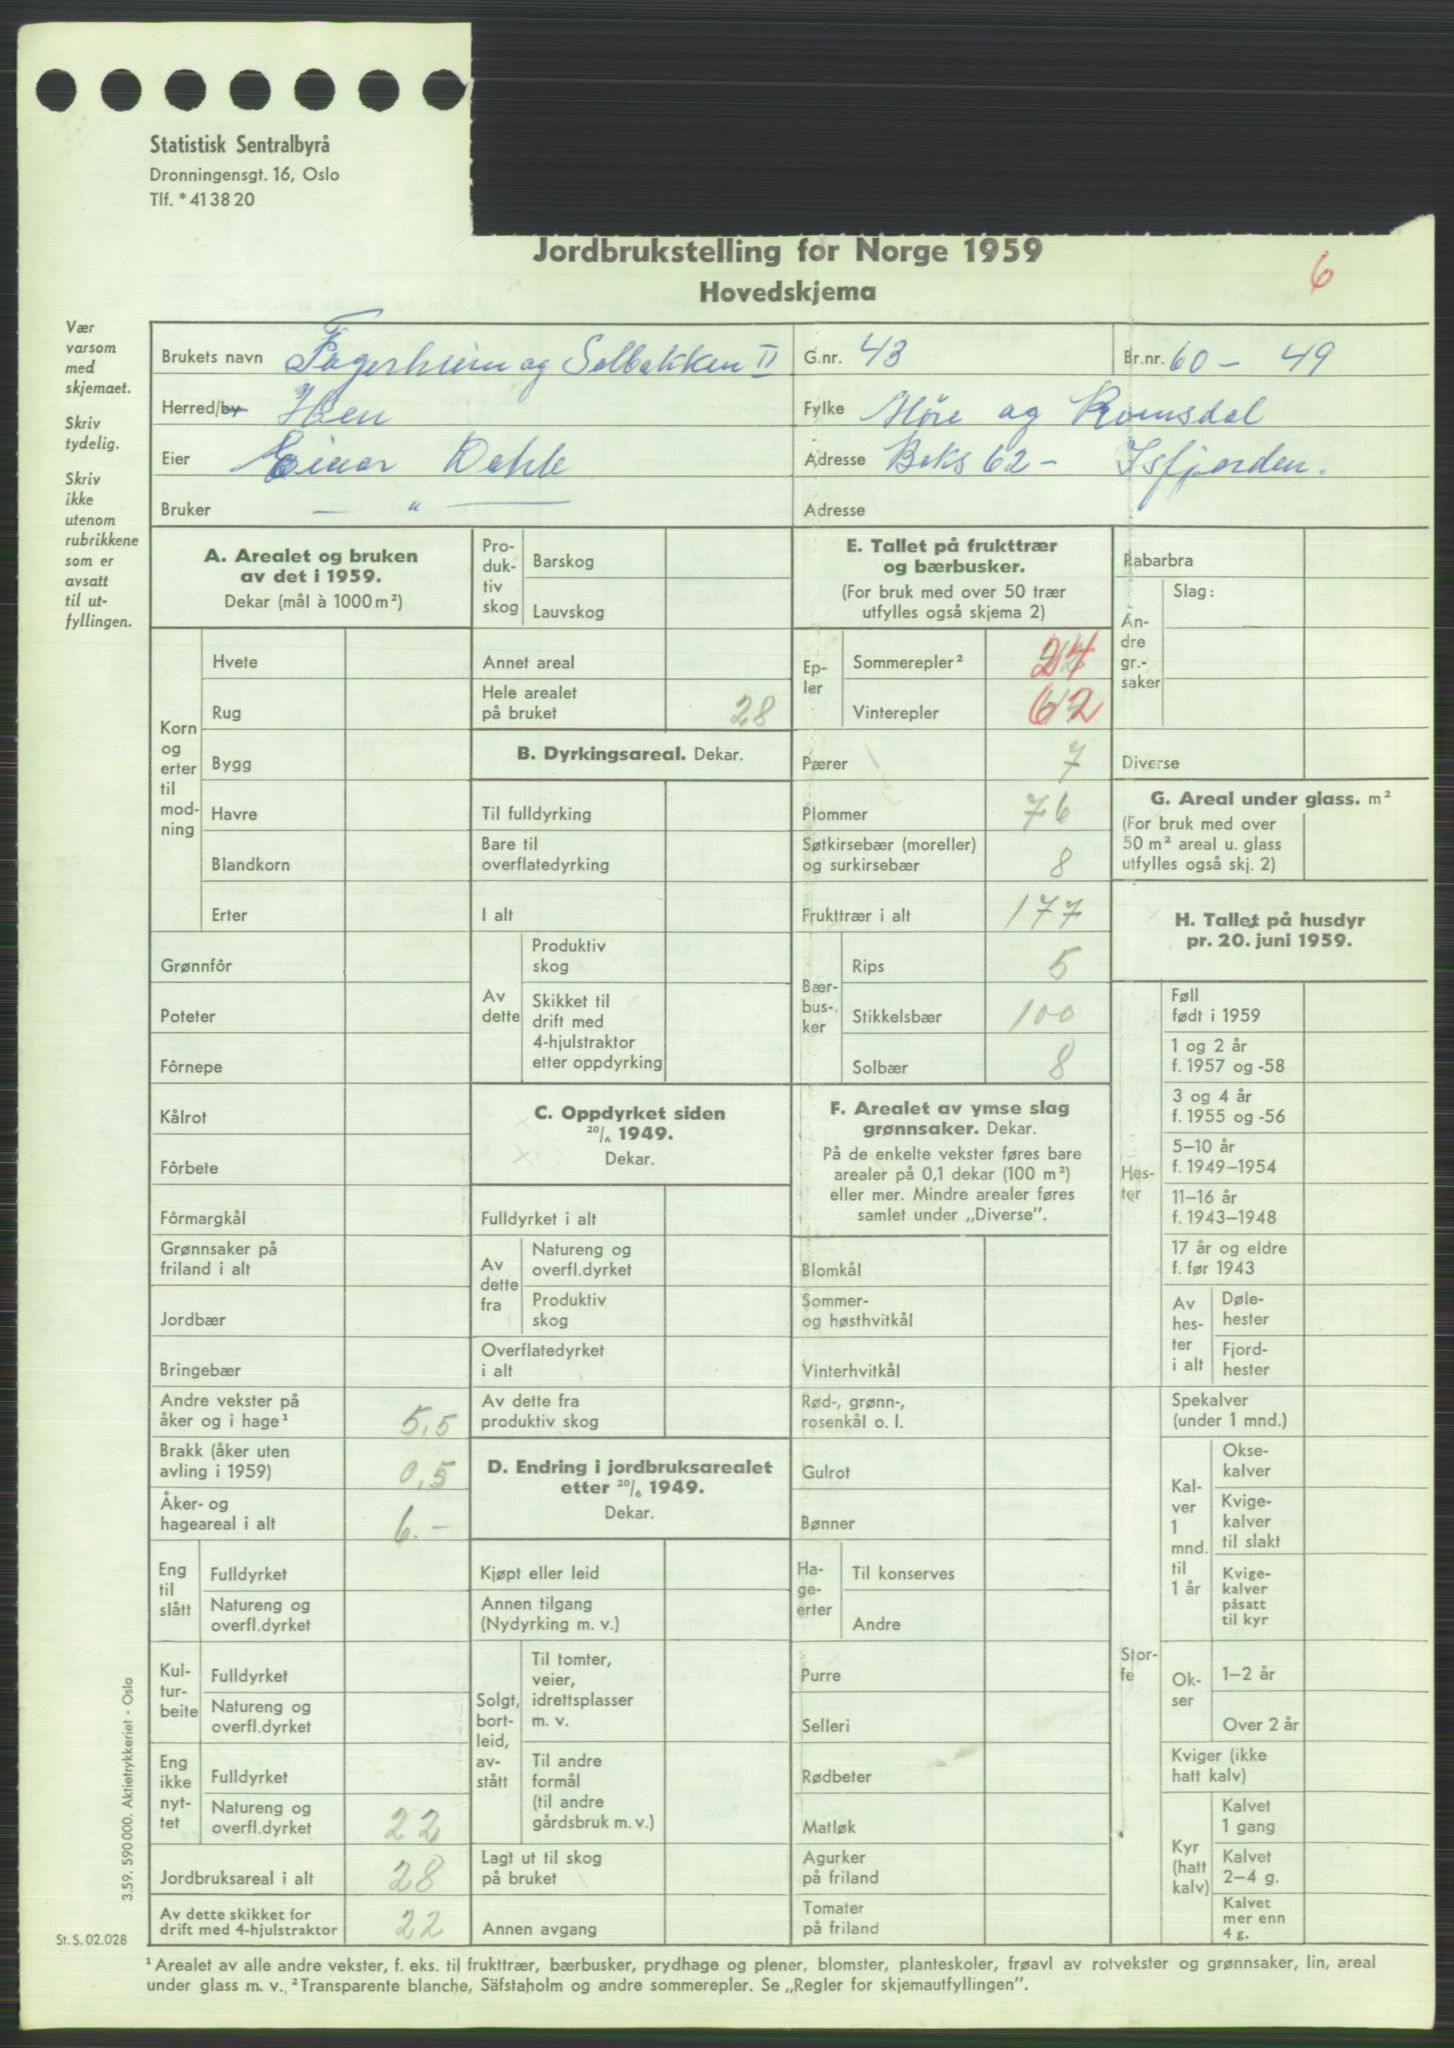 Statistisk Sentralbyrå
Dronningensgt. 16, Oslo
Tlf. * 41 38 20
Jordbrukstelling for Norge 1959
Hovedskjema
6
Vær
varsom
med
skjemaet.
Skriv
tydelig.
Skriv
ikke
utenom
rubrikkene
som er
avsatt
til ut-
fyllingen.
Brukets navn Fagerheim og Solbakken II G.nr. 43 Br.nr. 60 – 49
Herred/by Hen Fylke Møre og Romsdal
Eier Einar Dahle Adresse Boks 62 – Isfjorden.
Bruker — " — Adresse
A. Arealet og bruken
av det i 1959.
Dekar (mål à 1000 m²)
Korn
og
erter
til
mod-
ning
Hvete
Rug
Bygg
Havre
Blandkorn
Erter
Grønnfôr
Poteter
Fôrnepe
Kålrot
Fôrbete
Fôrmargkål
Grønnsaker på
friland i alt
Jordbær
Bringebær
Andre vekster på
åker og i hage¹ 5,5
Brakk (åker uten
avling i 1959) 0,5
Åker- og
hageareal i alt 6.–
Eng
til
slått
Fulldyrket
Natureng og
overfl.dyrket
Kul-
tur-
beite
Fulldyrket
Natureng og
overfl.dyrket
Eng
ikke
nyt-
tet
Fulldyrket
Natureng og
overfl.dyrket 22
Jordbruksareal i alt 28
Av dette skikket for
drift med 4-hjulstraktor 22
Pro-
duk-
tiv
skog
Barskog
Lauvskog
Annet areal
Hele arealet
på bruket 28
B. Dyrkingsareal. Dekar.
Til fulldyrking
Bare til
overflatedyrking
I alt
Av
dette
Produktiv
skog
Skikket til
drift med
4-hjulstraktor
etter oppdyrking
C. Oppdyrket siden
20/6 1949.
Dekar.
Fulldyrket i alt
Av
dette
fra
Natureng og
overfl.dyrket
Produktiv
skog
Overflatedyrket
i alt
Av dette fra
produktiv skog
D. Endring i jordbruksarealet
etter 20/6 1949.
Dekar.
Kjøpt eller leid
Annen tilgang
(Nydyrking m. v.)
Solgt,
bort-
leid,
av-
stått
Til tomter,
veier,
idrettsplasser
m. v.
Til andre
formål
(til andre
gårdsbruk m. v.)
Lagt ut til skog
på bruket
Annen avgang
E. Tallet på frukttrær
og bærbusker.
(For bruk med over 50 trær
utfylles også skjema 2)
Ep-
ler
Sommerepler² 24
Vinterepler 62
Pærer 7
Plommer 76
Søtkirsebær (moreller)
og surkirsebær 8
Frukttrær i alt 177
Bær-
bus-
ker
Rips 5
Stikkelsbær 100
Solbær 8
F. Arealet av ymse slag
grønnsaker. Dekar.
På de enkelte vekster føres bare
arealer på 0,1 dekar (100 m²)
eller mer. Mindre arealer føres
samlet under „Diverse".
Blomkål
Sommer-
og høsthvitkål
Vinterhvitkål
Rød-, grønn-,
rosenkål o. l.
Gulrot
Bønner
Ha-
ge-
erter
Til konserves
Andre
Purre
Selleri
Rødbeter
Matløk
Agurker
på friland
Tomater
på friland
Rabarbra
An-
dre
gr.-
saker
Slag:
Diverse
G. Areal under glass. m²
(For bruk med over
50 m² areal u. glass
utfylles også skj. 2)
H. Tallet på husdyr
pr. 20. juni 1959.
Hes-
ter
Føll
født i 1959
1 og 2 år
f. 1957 og -58
3 og 4 år
f. 1955 og -56
5–10 år
f. 1949–1954
11–16 år
f. 1943–1948
17 år og eldre
f. før 1943
Av
hes-
ter
i alt
Døle-
hester
Fjord-
hester
Stor-
fe
Spekalver
(under 1 mnd.)
Kal-
ver
1
mnd.
til
1 år
Okse-
kalver
Kvige-
kalver
til slakt
Kvige-
kalver
påsatt
til kyr
Ok-
ser
1–2 år
Over 2 år
Kviger (ikke
hatt kalv)
Kyr
(hatt
kalv)
Kalvet
1 gang
Kalvet
2–4 g.
Kalvet
mer enn
4 g.
3.59. 590 000. Aktietrykkeriet - Oslo
St. S. 02.028
¹ Arealet av alle andre vekster, f. eks. til frukttrær, bærbusker, prydhage og plener, blomster, planteskoler, frøavl av rotvekster og grønnsaker, lin, areal
under glass m. v. ² Transparente blanche, Säfstaholm og andre sommerepler. Se „Regler for skjemautfyllingen".